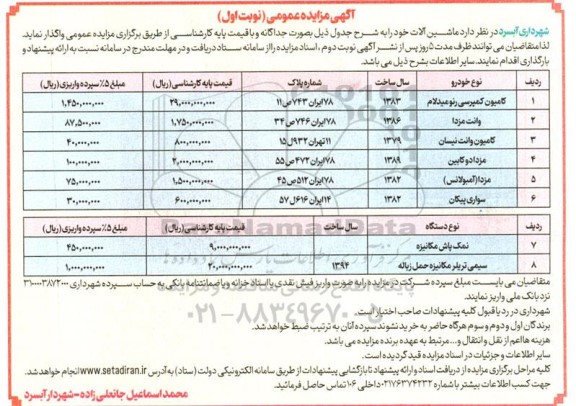 آگهی مزایده عمومی (نوبت اول)
شهرداری آبسرد در نظر دارد ماشین آلات خود را به شرح جدول ذیل بصورت جداگانه و با قیمت پایه کارشناسی از طریق برگزاری مزایده عمومی واگذار نماید.
لذا متقاضیان می توانند ظرف مدت ۵ روز پس از نشر آگهی نوبت دوم، اسناد مزایده را از سامانه ستاد دریافت و در مهلت مندرج در سامانه نسبت به ارائه پیشنهاد و
بارگذاری اقدام نمایند. سایر اطلاعات بشرح ذیل می باشد.
ردیف نوع خودرو سال ساخت شماره پلاک قیمت پایه کارشناسی (ریال) مبلغ ۵٪ سپرده واریزی (ریال)
۱ کامیون کمپرسی رنو میدلام ۱۳۸۳ ۷۸ایران ۷۴۳ص۱۱ ۲۹,۰۰۰,۰۰۰,۰۰۰ ۱,۴۵۰,۰۰۰,۰۰۰
۲ وانت مزدا ۱۳۸۶ ۷۸ایران ۷۴۶ص۳۴ ۱,۷۵۰,۰۰۰,۰۰۰ ۸۷,۵۰۰,۰۰۰
۳ کامیون وانت نیسان ۱۳۷۹ ۱۱تهران ۹۳۲ل۱۵ ۸۰۰,۰۰۰,۰۰۰ ۴۰,۰۰۰,۰۰۰
۴ مزدا دو کابین ۱۳۸۹ ۷۸ایران ۴۷۲ص۵۵ ۲,۰۰۰,۰۰۰,۰۰۰ ۱۰۰,۰۰۰,۰۰۰
۵ مزدا (آمبولانس) ۱۳۸۲ ۷۸ایران ۵۱۲ص۴۵ ۱,۵۰۰,۰۰۰,۰۰۰ ۷۵,۰۰۰,۰۰۰
۶ سواری پیکان ۱۳۸۲ ۱۴ایران ۶۱۶ل۵۷ ۶۰۰,۰۰۰,۰۰۰ ۳۰,۰۰۰,۰۰۰
ردیف نوع دستگاه سال ساخت قیمت پایه کارشناسی (ریال) مبلغ ۵٪ سپرده واریزی (ریال)
۷ نمک پاش مکانیزه ۹,۰۰۰,۰۰۰,۰۰۰ ۴۵۰,۰۰۰,۰۰۰
۸ سیمی تریلر مکانیزه حمل زباله ۱۳۹۴ ۲۰,۰۰۰,۰۰۰,۰۰۰ ۱,۰۰۰,۰۰۰,۰۰۰
متقاضیان می بایست مبلغ سپرده شرکت در مزایده را به صورت واریز فیش نقدی یا اسناد خزانه و یا ضمانتنامه بانکی به حساب سپرده شهرداری ۳۱۰۰۰۰۳۸۷۲۰۰۰
نزد بانک ملی واریز نمایند.
شهرداری در رد یا قبول کلیه پیشنهادات صاحب اختیار است.
برندگان اول و دوم و سوم هرگاه حاضر به خرید نشوند سپرده آنان به ترتیب ضبط خواهد شد.
هزینه ها اعم از نقل و انتقال و... مرتبط به عهده برنده مزایده می باشد.
سایر اطلاعات و جزئیات در اسناد مزایده قید گردیده است.
کلیه مراحل برگزاری مزایده از دریافت اسناد و ارائه پیشنهاد تا بازگشایی پیشنهادات از طریق سامانه الکترونیکی دولت (ستاد) به آدرس www.setadiran.ir انجام خواهد شد.
جهت کسب اطلاعات بیشتر با شماره ۰۲۱۷۶۳۷۴۲۳۲ داخلی ۱۰۶ تماس حاصل فرمائید.
محمد اسماعیل جانعلی زاده - شهردار آبسرد
ParsNamadData
۰۲۱-۸۸۳۴۹۶۷۰-۵